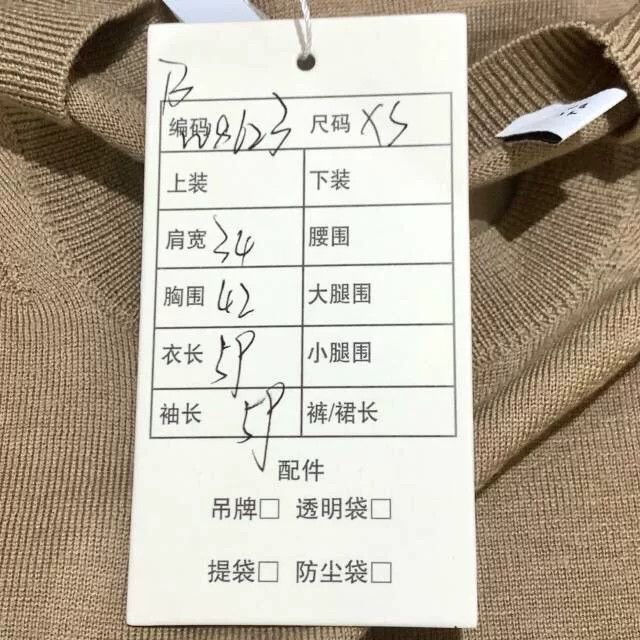 B
编码 8623 尺码 XS
上装 下装
肩宽 34 腰围
胸围 42 大腿围
衣长 59 小腿围
袖长 59 裤/裙长
配件
吊牌□ 透明袋□
提袋□ 防尘袋□